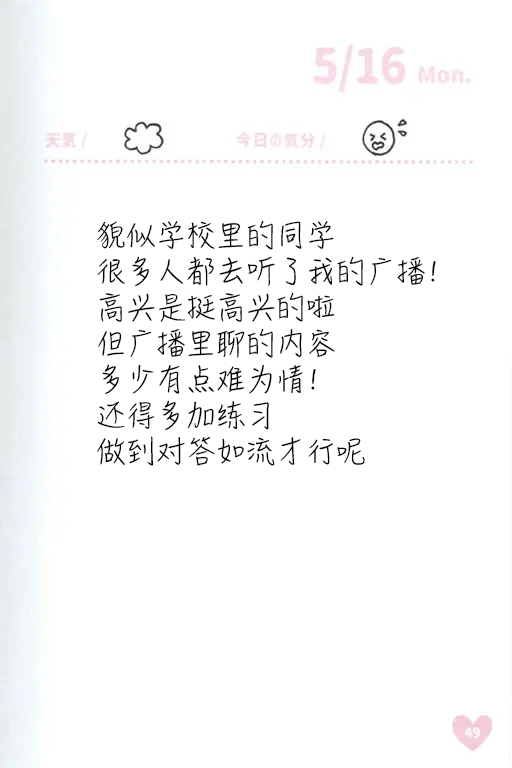 5/16 Mon.
天気 / 今日の気分 /
貌似学校里的同学
很多人都去听了我的广播！
高兴是挺高兴的啦
但广播里聊的内容
多少有点难为情！
还得多加练习
做到对答如流才行呢
49